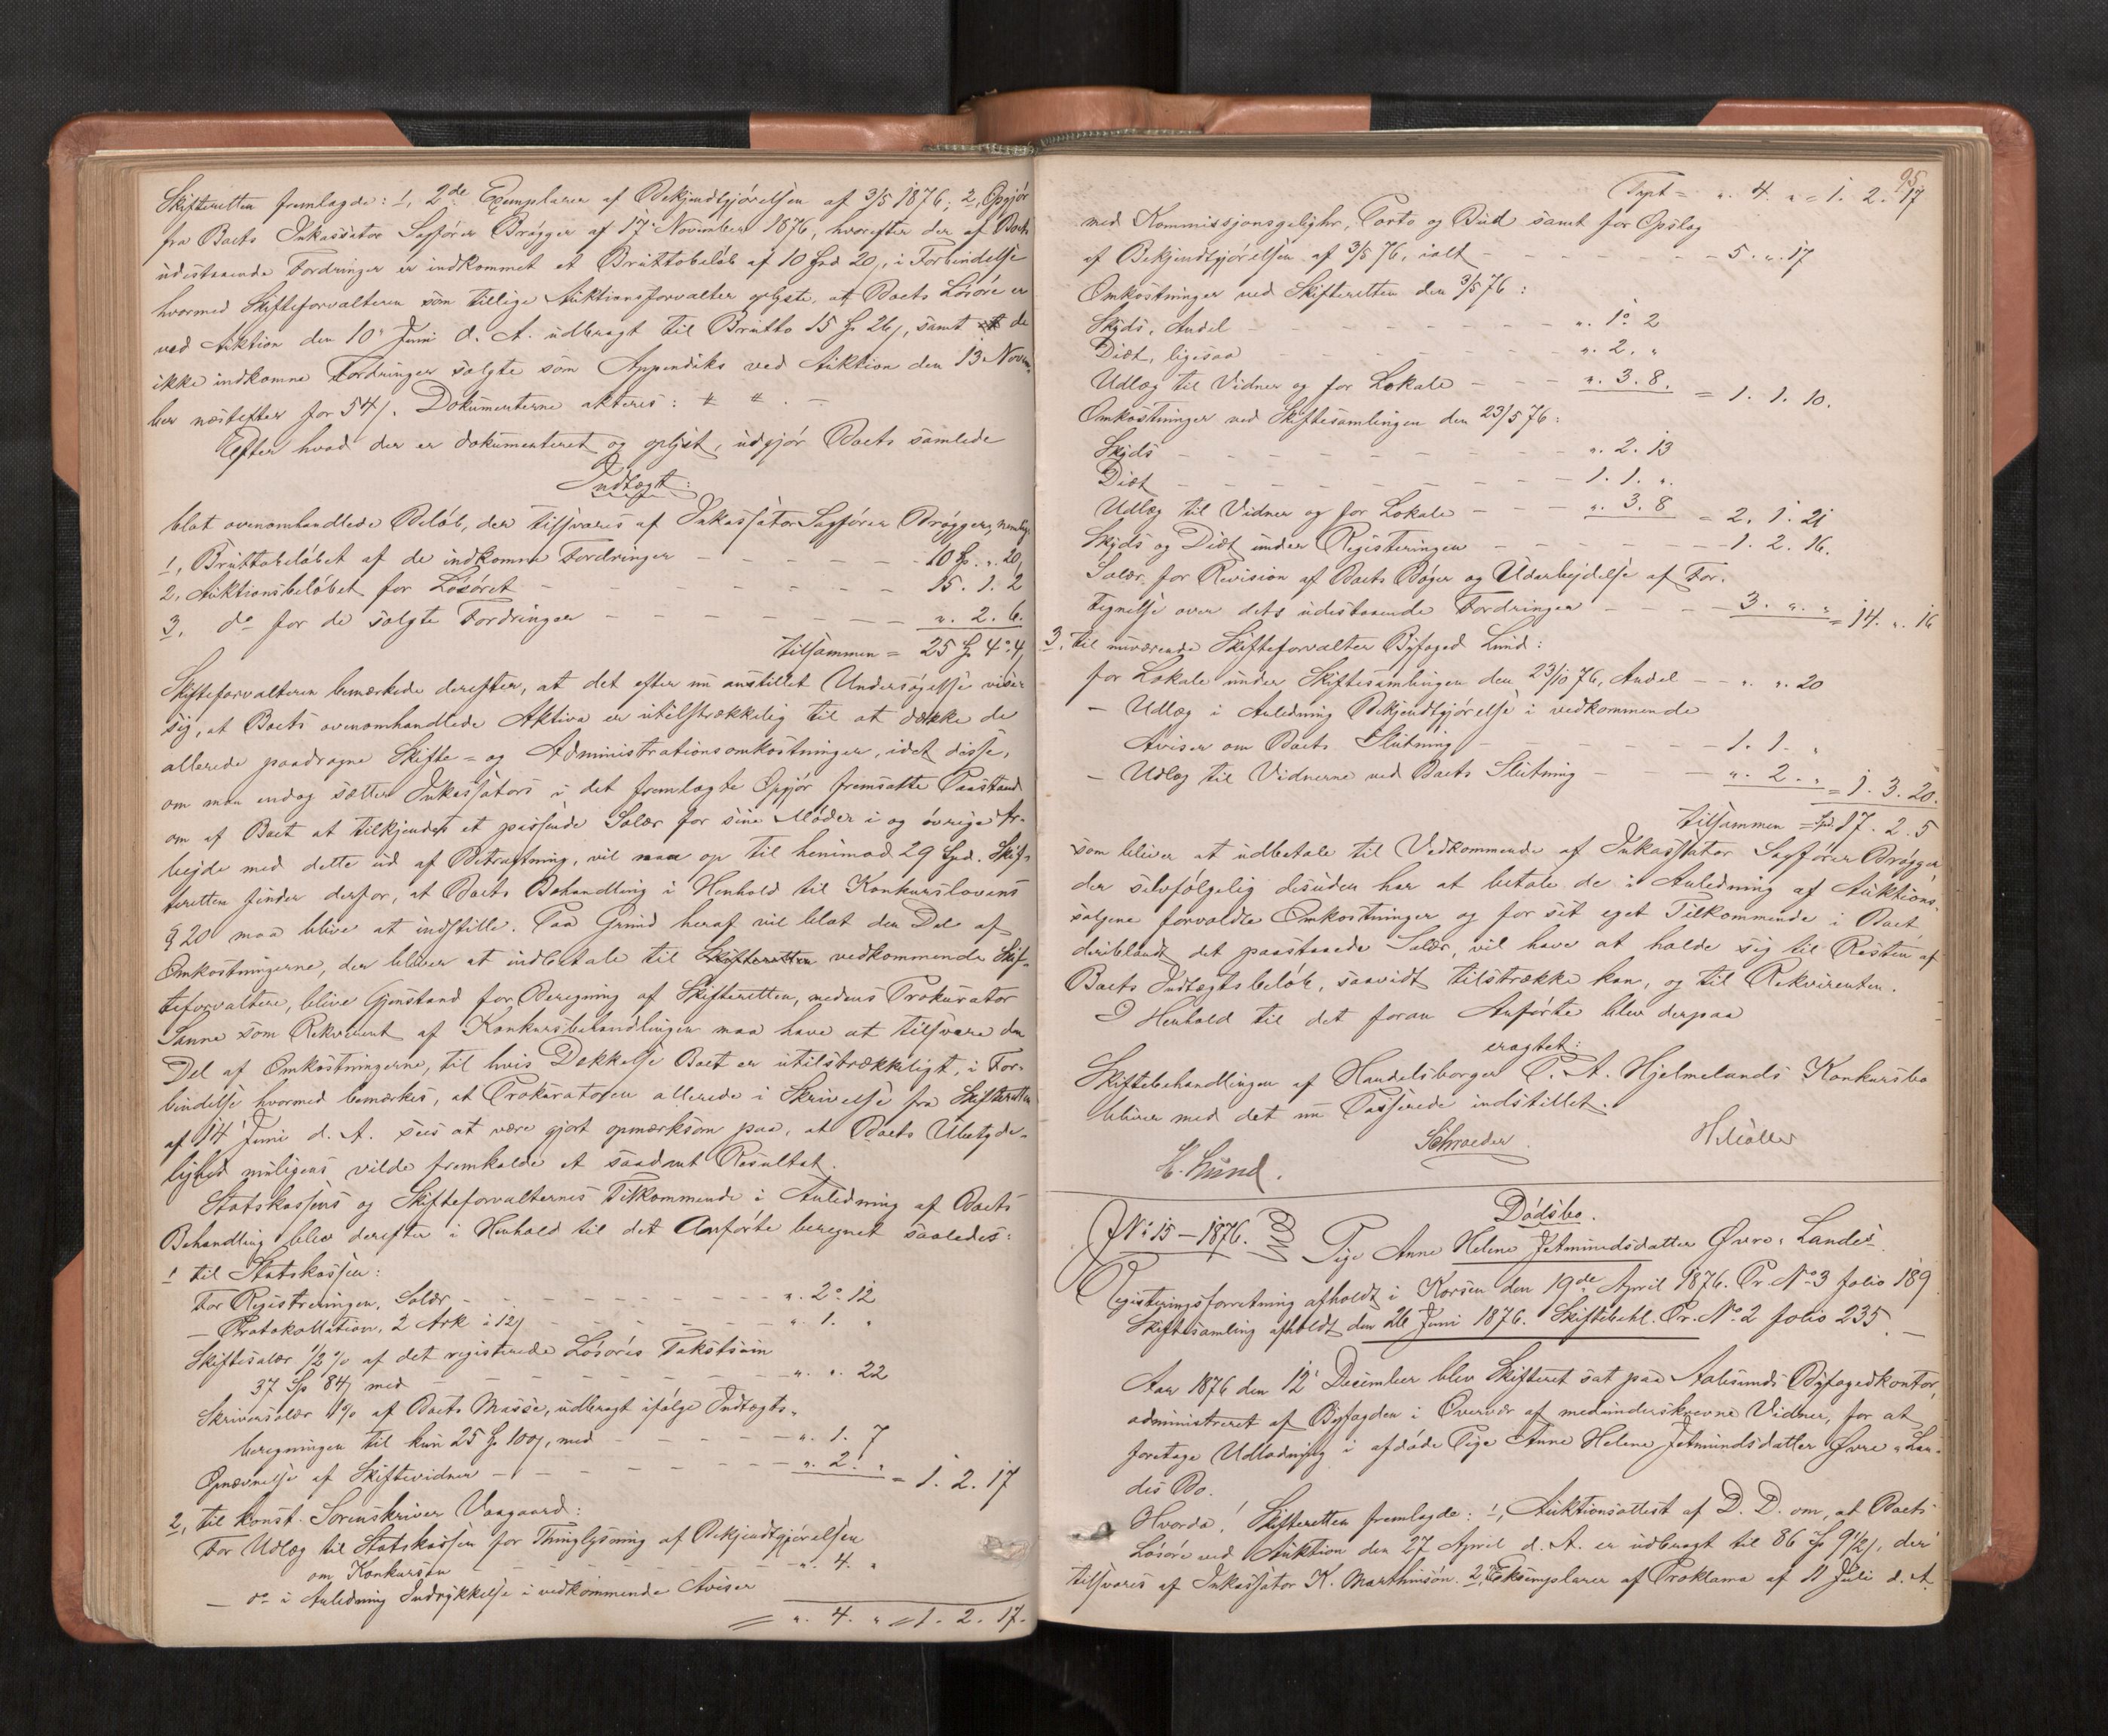 Skifteretten fremlagde: 1, 2de Exemplarer af Bekjendtgjørelsen af 3/5 1876; 2, Opgjør
fra Boets Inkassator Sagfører Brøgger af 17 November 1876, hvorefter der af Boets
udestaaende Fordringer er indkommet et Bruttobeløb af 10 Spd 20 s, i Forbindelse
hvormed Skifteforvalteren som tillige Auktionsforvalter oplyste, at Boets Løsøre er
ved Auktion den 10 Juni d. A. udbragt til Brutto 15 Sp 26 s, samt de
ikke indkomne Fordringer solgte som Appendiks ved Auktion den 13 Novem-
ber næstefter for 54 s. Dokumenterne akteres: # #. –
Efter hvad der er dokumenteret og oplyst, udgjør Boets samlede
Indtægt:
blot ovenomhandlede Beløb, der tilsvares af Inkassator Sagfører Brøgger, nemlig
1, Bruttobeløbet af de indkomne Fordringer – 10 Sp. „. 20
2, Auktionsbeløbet for Løsøret – 15. 1. 2
3, do for de solgte Fordringer – „. 2. 6.
tilsammen = 25 Sp 4. 4
Skifteforvalteren bemærkede derefter, at det efter nu anstillet Undersøgelse viser
sig, at Boets ovenomhandlede Aktiva er utilstrækkelig til at dække de
allerede paadragne Skifte- og Administrationsomkostninger, idet disse,
om man endog sætter Inkassators i det fremlagte Opgjør fremsatte Paastand
om af Boet at tilkjendes et passende Salær for sine Møder i og øvrige Ar-
bejde med dette ud af Betragtning, vil naa op til henimod 29 Spd. Skif-
teretten finder derfor, at Boets Behandling i Henhold til Konkurslovens
§ 20 maa blive at indstille. Paa Grund heraf vil blot den Del af
Omkostningerne, der bliver at indbetale til Skifteretten vedkommende Skif-
teforvaltere, blive Gjenstand for Beregning af Skifteretten, medens Prokurator
Sanne som Rekvirent af Konkursbehandlingen maa have at tilsvare den
Del af Omkostningerne, til hvis Dækkelse Boet er utilstrækkeligt, i For-
bindelse hvormed bemærkes, at Prokuratoren allerede i Skrivelse fra Skifteretten
af 14 Juni d. A. sees at være gjort opmærksom paa, at Boets Ubetyde-
lighed muligens vilde fremkalde et saadant Resultat.
Statskassens og Skifteforvalternes Tilkommende i Anledning af Boets
Behandling blev derefter i Henhold til det Anførte beregnet saaledes:
1 til Statskassen:
For Registreringen, Salær – „. 2. 12
– Protokollation, 2 Ark à 12 s – „. 1. „
Skiftesalær 1/2 % af det registrerede Løsøres Takstsum
37 Sp 84 s med – „. „. 22
Skriversalær 4% af Boets Masse, udbragt ifølge Indtægts-
beregningen til kun 25 Sp 100 s, med – „. 1. 7
Opnævnelse af Skiftevidner – „. 2. „ = 1. 2. 17
2, til konst. Sorenskriver Vaagaard:
For Udlæg til Statskassen for Thinglysning af Bekjendtgjørelsen
om Konkursen – „. 4. „
– do i Anledning Indrykkelse i vedkommende Aviser
= „. 4. „ = 1. 2. 17.
95
Trpt = „. 4. „ = 1. 2. 17
med Kommissjonsgebyhr, Porto og Bud samt for Opslag
af Bekjendtgjørelsen af 3/5 76, ialt – 5. „. 17
Omkostninger ved Skifteretten den 3/5 76:
Skyds, Andel – „. 1. 2
Diæt, ligesaa – „. 2. „
Udlæg til Vidner og for Lokale – „. 3. 8. = 1. 1. 10.
Omkostninger ved Skiftesamlingen den 23/5 76:
Skyds – „. 2. 13
Diæt – 1. 1. „
Udlæg til Vidner og for Lokale – „. 3. 8 = 2. 1. 21
Skyds og Diæt under Registreringen – 1. 2. 16.
Salær for Revision af Boets Bøger og Udarbejdelse af For-
tegnelse over dets udestaaende Fordringer – 3. „. „ = 14. „. 16
3, til nuværende Skifteforvalter Byfoged Lund:
for Lokale under Skiftesamlingen den 23/10 76, Andel – „. „. 20
– Udlæg i Anledning Bekjendtgjørelse i vedkommende
Aviser om Boets Slutning – 1. 1. „
– Udlæg til Vidnerne ved Boets Slutning – „. 2. „ = 1. 3. 20.
tilsammen = Spd. 17. 2. 5
som bliver at udbetale til Vedkommende af Inkassator Sagfører Brøgger
der selvfølgelig desuden har at betale de i Anledning af Auktions-
salgene forvoldte Omkostninger og for sit eget Tilkommende i Boet,
deriblandt det paastaaede Salær, vil have at holde sig til Resten af
Boets Indtægtsbeløb, saavidt tilstrække kan, og til Rekvirenten.
I Henhold til det foran Anførte blev derpaa
eragtet:
Skiftebehandlingen af Handelsborger P. A. Hjelmelands Konkursbo
bliver med det nu Passerede indstillet.
E. Lund. Schroeder. H Møller
Dødsbo.
No 15 – 1876. Pige Anne Helene Jetmundsdatter Øvre-Landes
Registreringsforretning afholdt i Korsen den 19de April 1876. Pr. No 3 folio 189
Skiftesamling afholdt den 26 Juni 1876. Skiftebehl. Pr. No 2 folio 235. –
Aar 1876 den 12 December blev Skifteret sat paa Aalesunds Byfogedkontor,
administreret af Byfogden i Overvær af medunderskrevne Vidner, for at
foretage Udlodning i afdøde Pige Anne Helene Jetmundsdatter Øvre-Lan-
des Bo.
Hvorda! Skifteretten fremlagde: 1, Auktionsattest af D. D. om, at Boets
Løsøre ved Auktion den 27 April d. A. er udbragt til 86 Sp 9 1/2 s, der
tilsvares af Inkassator K. Marthinson. 2, Exemplarer af Proklama af 11 Juli d. A.